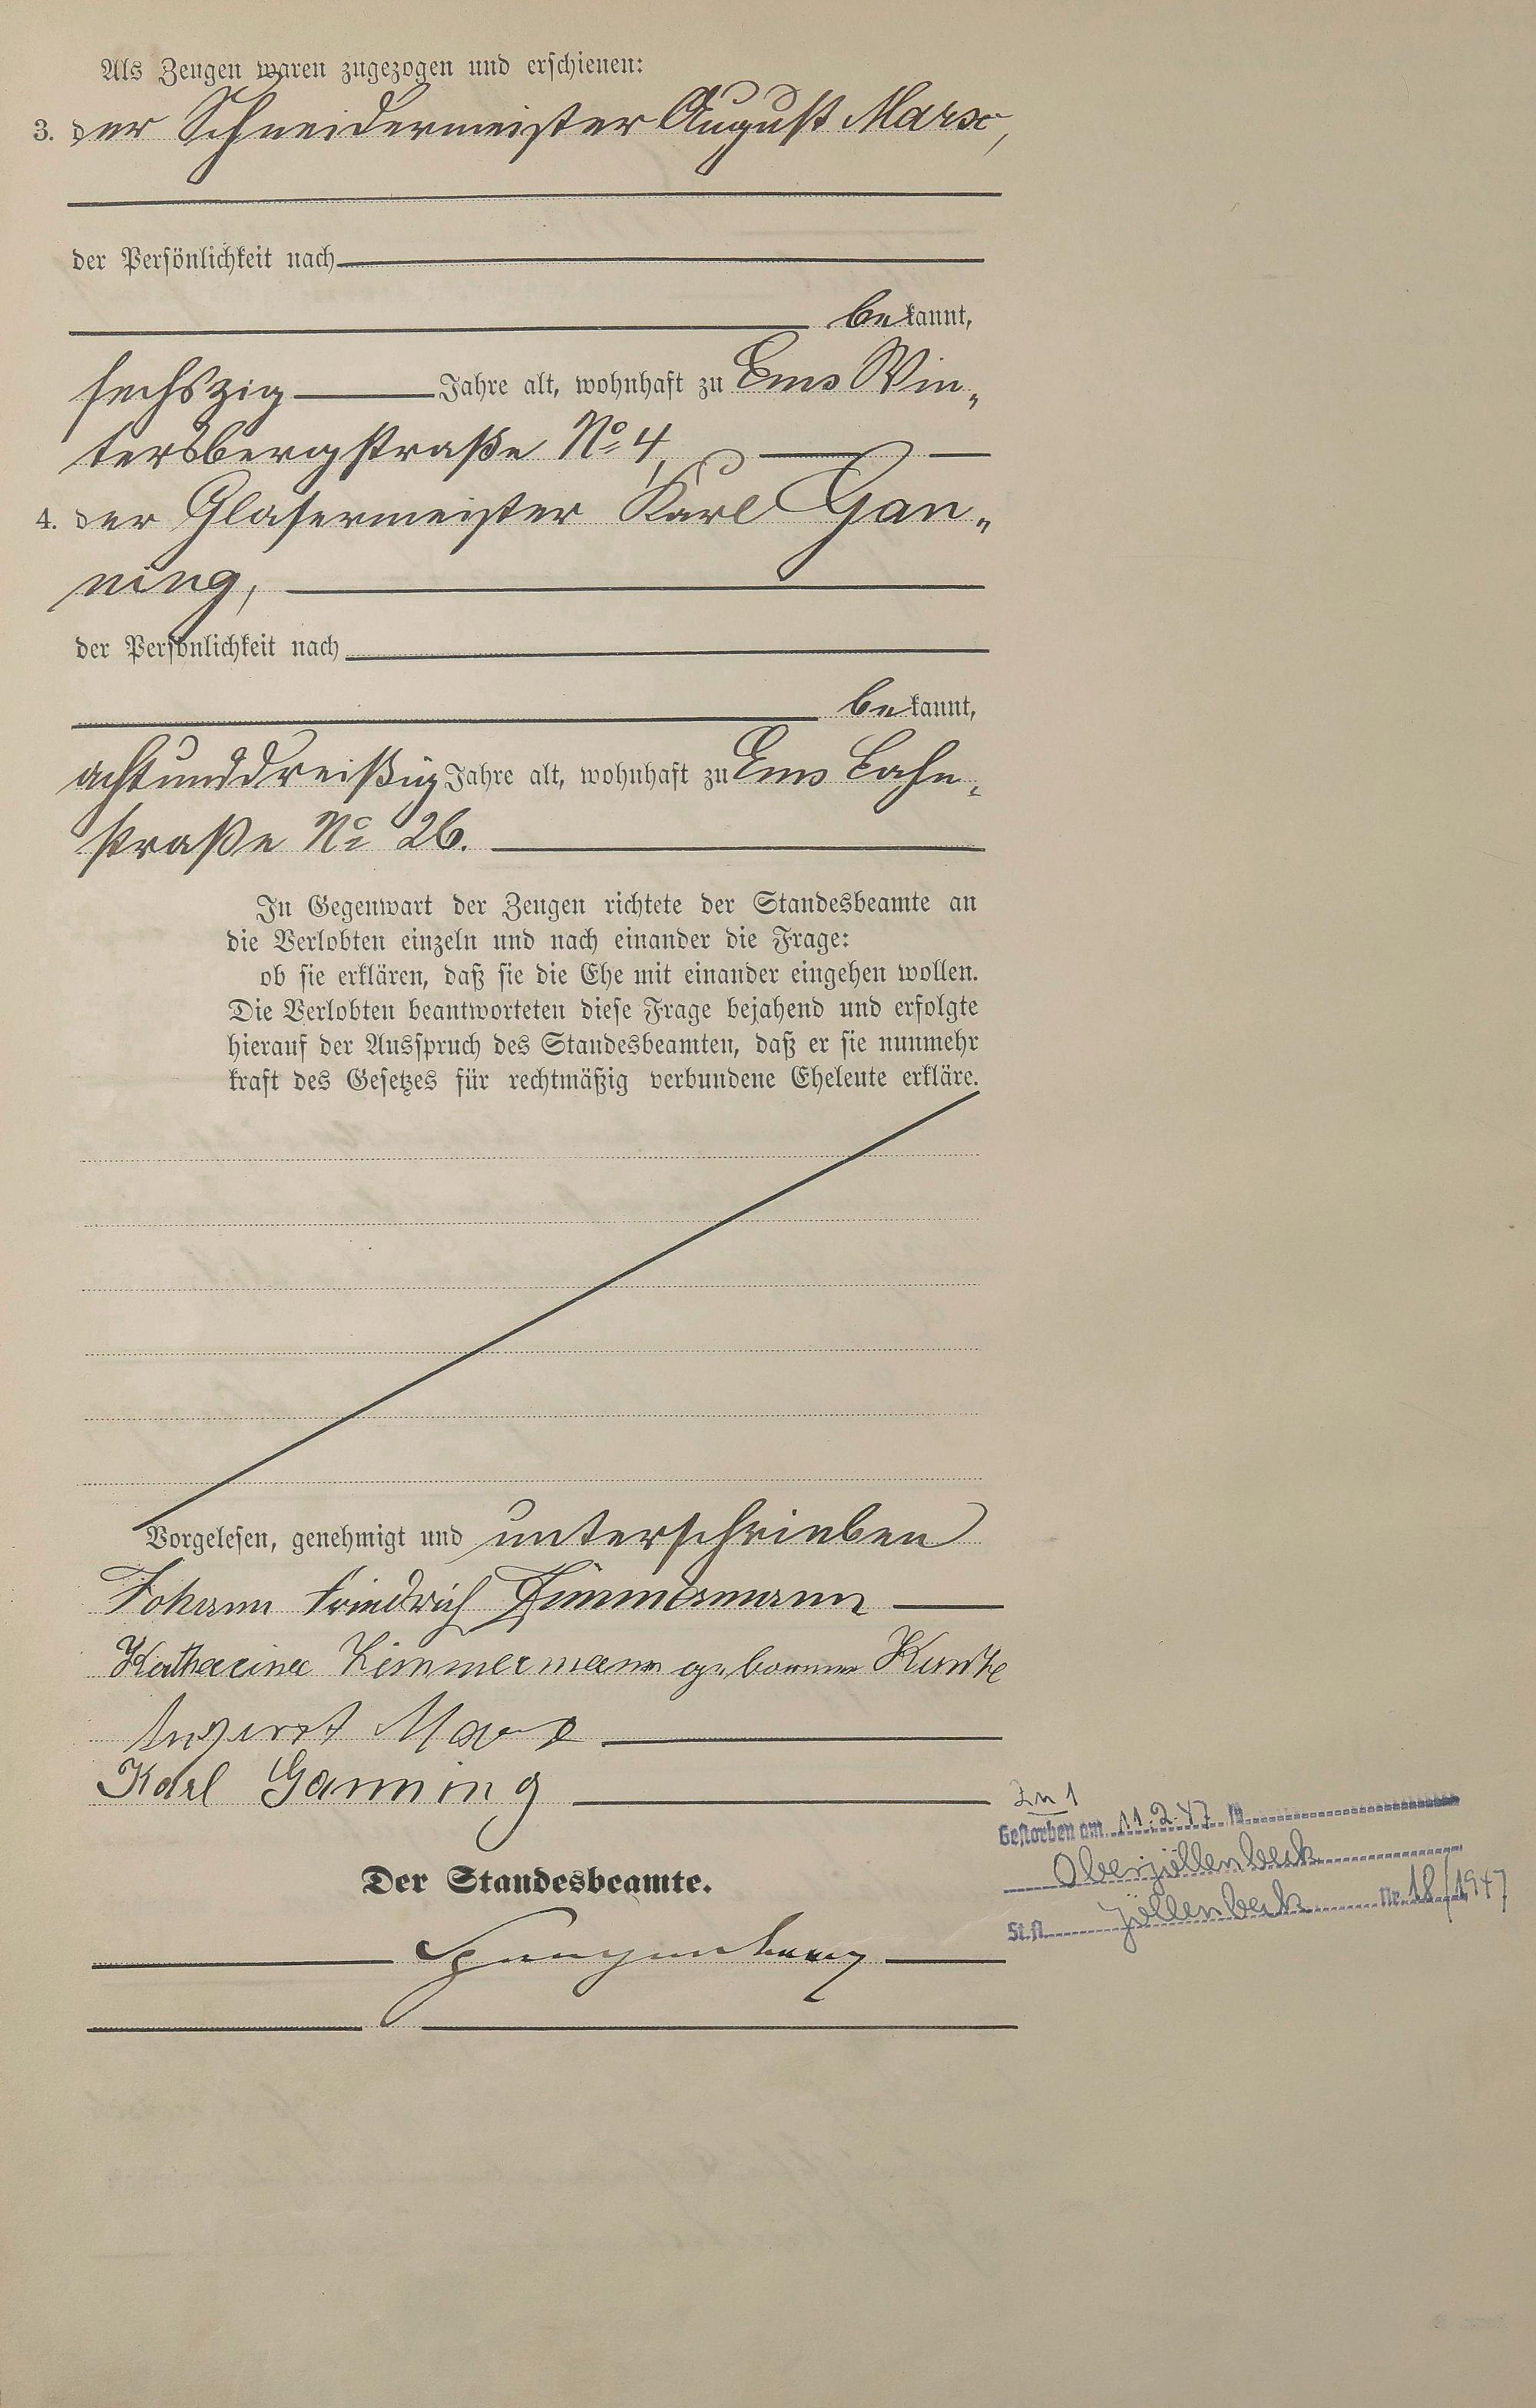 Als Zeugen waren zugezogen und erschienen:
3. der Schneidermeister August Marx,
der Persönlichkeit nach
bekannt,
sechszig Jahre alt, wohnhaft zu Ems Win„
tersbergstraße No 4,
4. der Glasermeister Karl Gan„
ning,
der Persönlichkeit nach
bekannt,
achtunddreißig Jahre alt, wohnhaft zu Ems Lahn„
straße No 26.
In Gegenwart der Zeugen richtete der Standesbeamte an
die Verlobten einzeln und nach einander die Frage:
ob sie erklären, daß sie die Ehe mit einander eingehen wollen.
Die Verlobten beantworteten diese Frage bejahend und erfolgte
hierauf der Ausspruch des Standesbeamten, daß er sie nunmehr
kraft des Gesetzes für rechtmäßig verbundene Eheleute erkläre.
Vorgelesen, genehmigt und unterschrieben
Johann Friedrich Zimmermann
Katharina Zimmermann geborene
August Marx
Karl Ganning
Der Standesbeamte.
Spangenberg
Zu 1
Gestorben am 11.2.47 in
Oberjöllenbeck
St.A. Jöllenbeck Nr. 18/1947